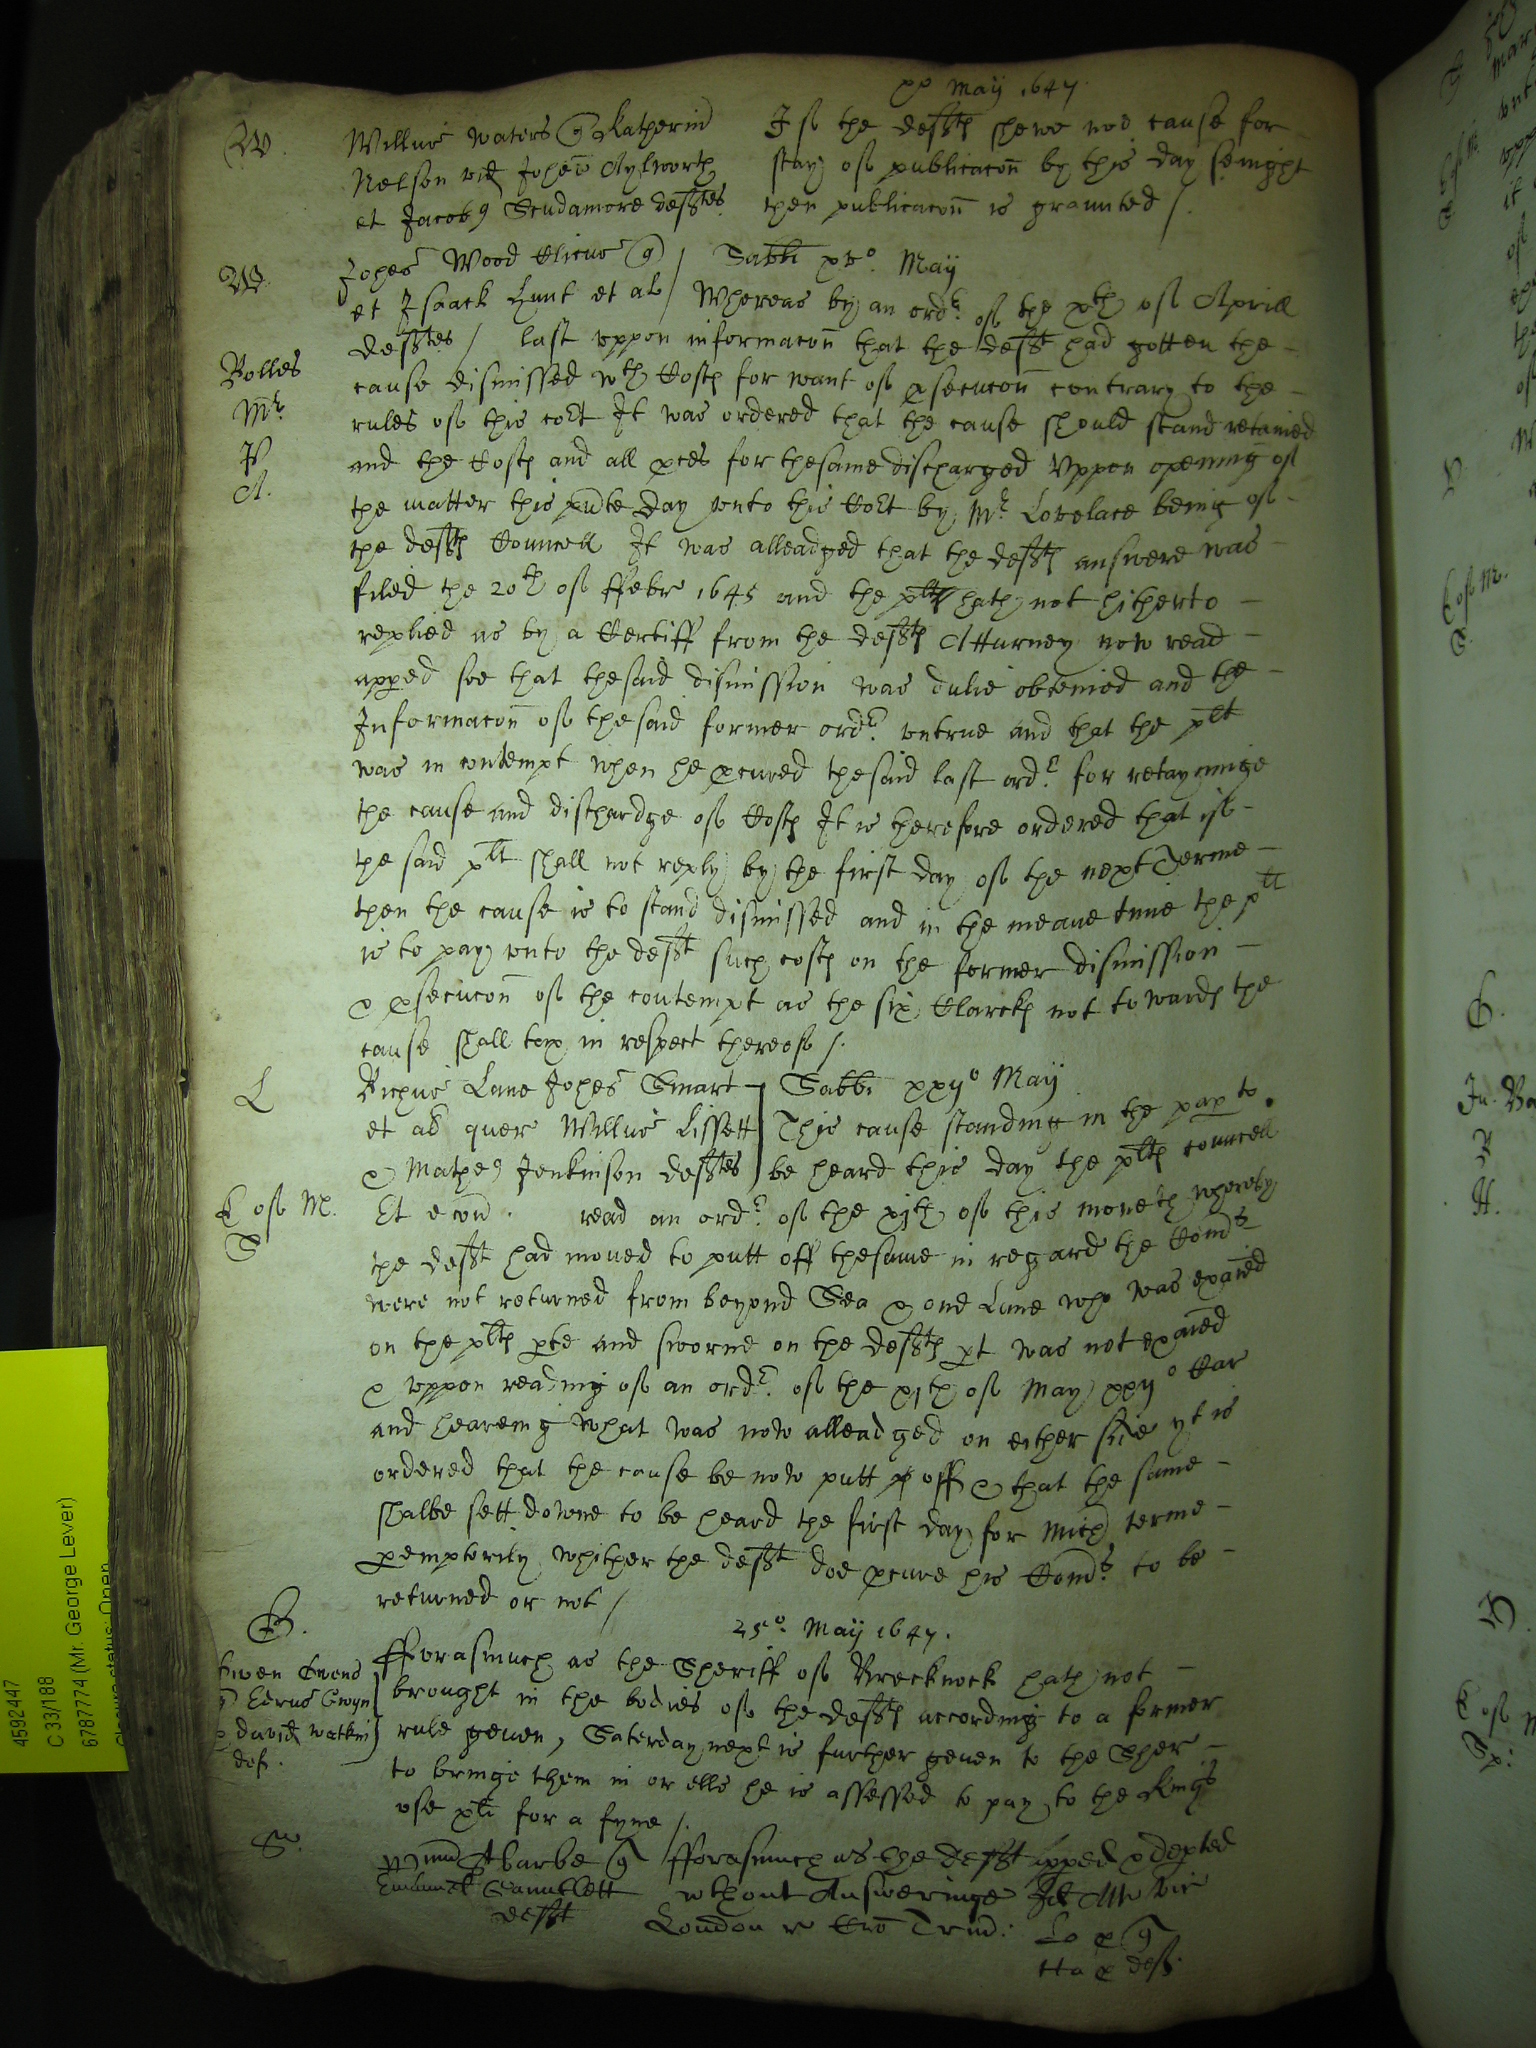 xxo May 1647.
W.
Willus waters q Katherin
Nelson vid Johes Aylworth
et Jacob9 Scudamore defftes
If the deffts shewe noe cause for
stay of publicacon by this day senight
then publicacon is graunted /.
W
Johes Wood Clicus q
et Isaack Hunt et al
defftes /
Sabbi xvo. May
Whereas by an ordr. of the xth of Aprill
last uppon informacon that the defft had gotten the
Bolles
Mr.
P
A.
cause dismissed wth Costs for want of psecucon contrary to the
rules of this cort It was ordered that the cause should stand retained
and the Costs and all pces for thesame discharged Uppon opening of
the matter this pnte day unto this Cort by Mr. Lovelace being of
the deffts Councell It was alleadged that the deffts answere was
filed the 20th of ffebr 1645 and the plt hath not hitherto
replied as by a Certiff from the deffts Atturney now read
apped soe that thesaid dismission was dulie obteined and the
Informacon of thesaid former ordr. untrue and that the plt
was in contempt when he pcured thesaid last ordr. for retayninge
the cause and dischardge of Costs It is therefore ordered that if
the said plt shall not reply by the first day of the next Terme
then the cause is to stand dismissed and in the meane time the plt
is to pay unto the defft such costs on the former dismission
& psecucon of the contempt as the six Clarcks not towards the
cause shall tax in respect thereof /.
L
Richus Lane Johes Smart
et al quer Willus Lissett
& Mathe9 Jenkinson defftes
Et econ .
Sabbi xxijo May
This cause standing in the pap to
be heard this day the plts councell
E of M.
S
read an ordr. of the xjth of this moneth whereby
the defft had moved to putt off thesame in regard the Comds
were not returned from beyond Sea & one Lane who was exaied
on the plts pte and sworne on the deffts pt was not exaied
& uppon reading of an ordr. of the xjth of May xxijo Car
and hearing what was now alleadged on either side yt is
ordered that the cause be now putt off & that the same
shalbe sett downe to be heard the first day for Mich terme
pemptorily whither the defft doe pcure his Comds. to be
returned or not /
25o. May 1647.
G.
Owen Owens
q Edrus Gwyn
& David Watkin
def.
fforasmuch as the Sheriff of Brecknock hath not
brought in the bodies of the deffts according to a former
rule geven, Saterday next is further geven to the Sher
to bringe them in or ells he is assessed to pay to the Kings
use xli for a fyne /.
S.
Barbe q
Emanuel Gauntlett
defft
fforasmuch as the defft apped & depted
wthout Answeringe Id Att Vic
London r Cro Trin:
Lo p q
Ha p def.
4592447
C 33/188
6787774 (Mr. George Lever)
Closure status: Open